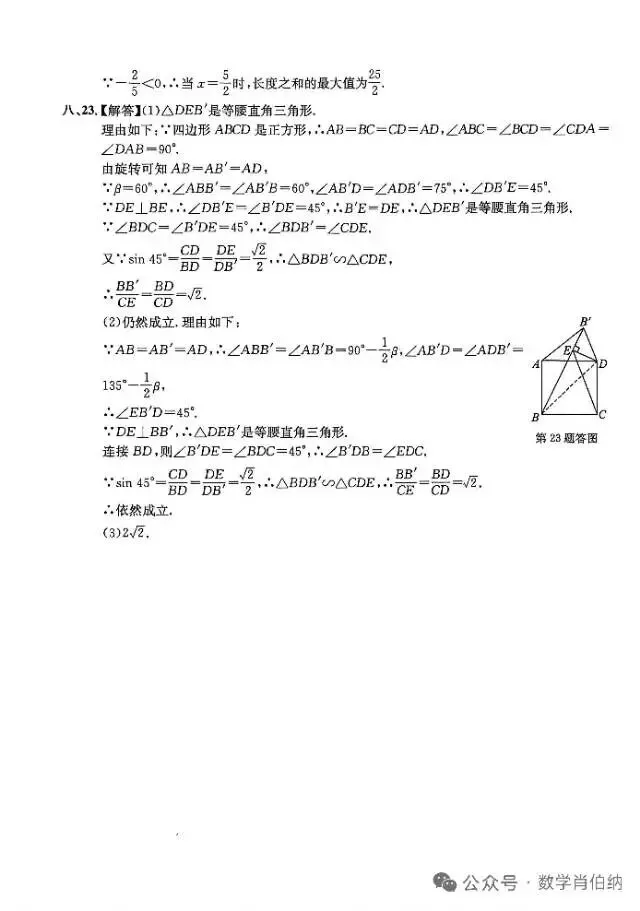 ∵－2/5＜0,∴当 x＝5/2时,长度之和的最大值为25/2.
八、23.【解答】(1)△DEB′是等腰直角三角形.
理由如下:∵四边形 ABCD 是正方形,∴AB＝BC＝CD＝AD,∠ABC＝∠BCD＝∠CDA＝
∠DAB＝90°.
由旋转可知 AB＝AB′＝AD,
∵β＝60°,∴∠ABB′＝∠AB′B＝60°,∠AB′D＝∠ADB′＝75°,∴∠DB′E＝45°.
∵DE⊥BE,∴∠DB′E＝∠B′DE＝45°,∴B′E＝DE,∴△DEB′是等腰直角三角形.
∵∠BDC＝∠B′DE＝45°,∴∠BDB′＝∠CDE.
又∵sin 45°＝CD/BD＝DE/DB′＝√2/2,∴△BDB′∽△CDE,
∴BB′/CE＝BD/CD＝√2.
(2)仍然成立.理由如下:
∵AB＝AB′＝AD,∴∠ABB′＝∠AB′B＝90°－1/2β,∠AB′D＝∠ADB′＝
135°－1/2β,
∴∠EB′D＝45°.
∵DE⊥BB′,∴△DEB′是等腰直角三角形.
连接 BD,则∠B′DE＝∠BDC＝45°,∴∠B′DB＝∠EDC.
∵sin 45°＝CD/BD＝DE/DB′＝√2/2,∴△BDB′∽△CDE,∴BB′/CE＝BD/CD＝√2.
∴依然成立.
(3)2√2.
B′
E
A
D
B
C
第 23 题答图
公众号·数学肖伯纳